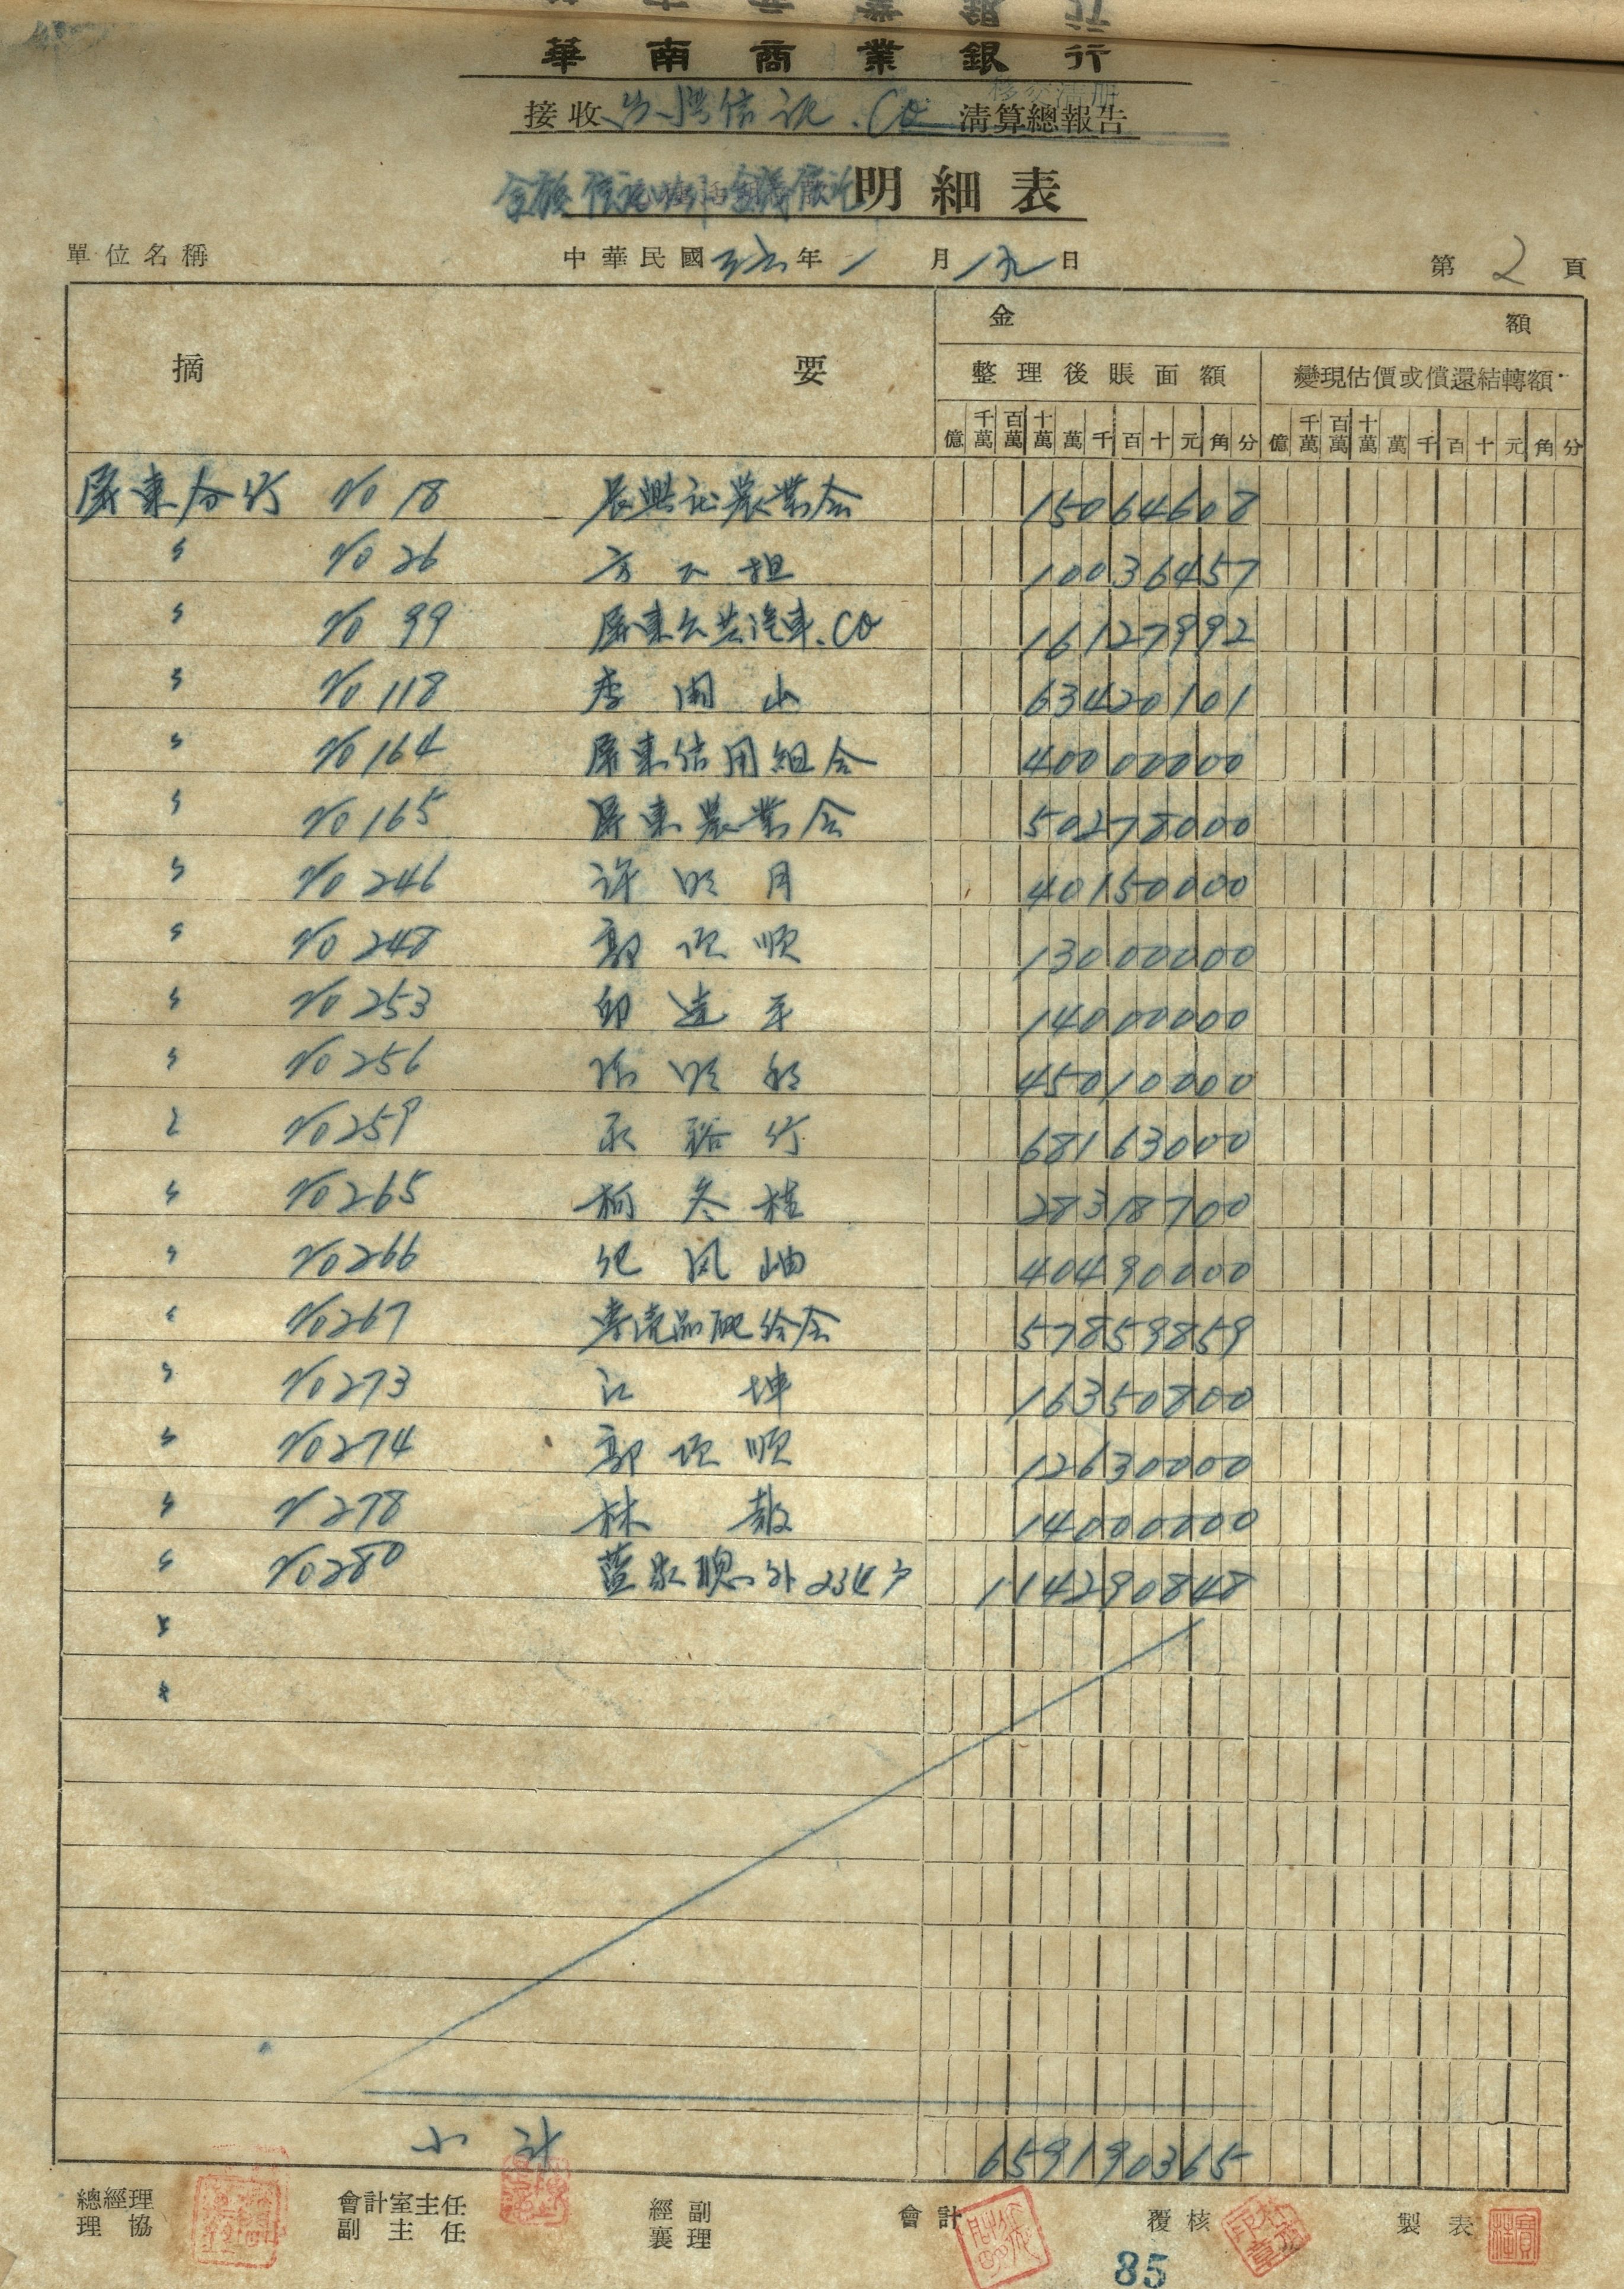 華南商業銀行
接收台灣信託.CO清算總報告
金錢信託 明細表
單位名稱 中華民國三六年1月19日 第2頁
摘要 金額
整理後賬面額 變現估價或償還結轉額
億 千萬 百萬 十萬 萬 千 百 十 元 角 分 億 千萬 百萬 十萬 萬 千 百 十 元 角 分
屏東分行 No 18 長興庄農業会 15064608
〃 No 26 10036457
〃 No 99 屏東公共汽車.CO 16127992
〃 No 118 李開山 63420101
〃 No 164 屏東信用組合 40000000
〃 No 165 屏東農業会 50278000
〃 No 246 許明月 40150000
〃 No 248 郭項順 13000000
〃 No 253 14000000
〃 No 256 45010000
〃 No 259 永裕行 68163000
〃 No 265 柯冬桂 28318700
〃 No 266 40490000
〃 No 267 專売品配給会 57859859
〃 No 273 江坤 16350800
〃 No 274 郭項順 12630000
〃 N 278 林 14000000
〃 No 280 藍家聰外234戶 114290848
〃
〃
小計 659190365
總經理 會計室主任 經副 會計 覆核 製表
理協 副主任 襄理
85